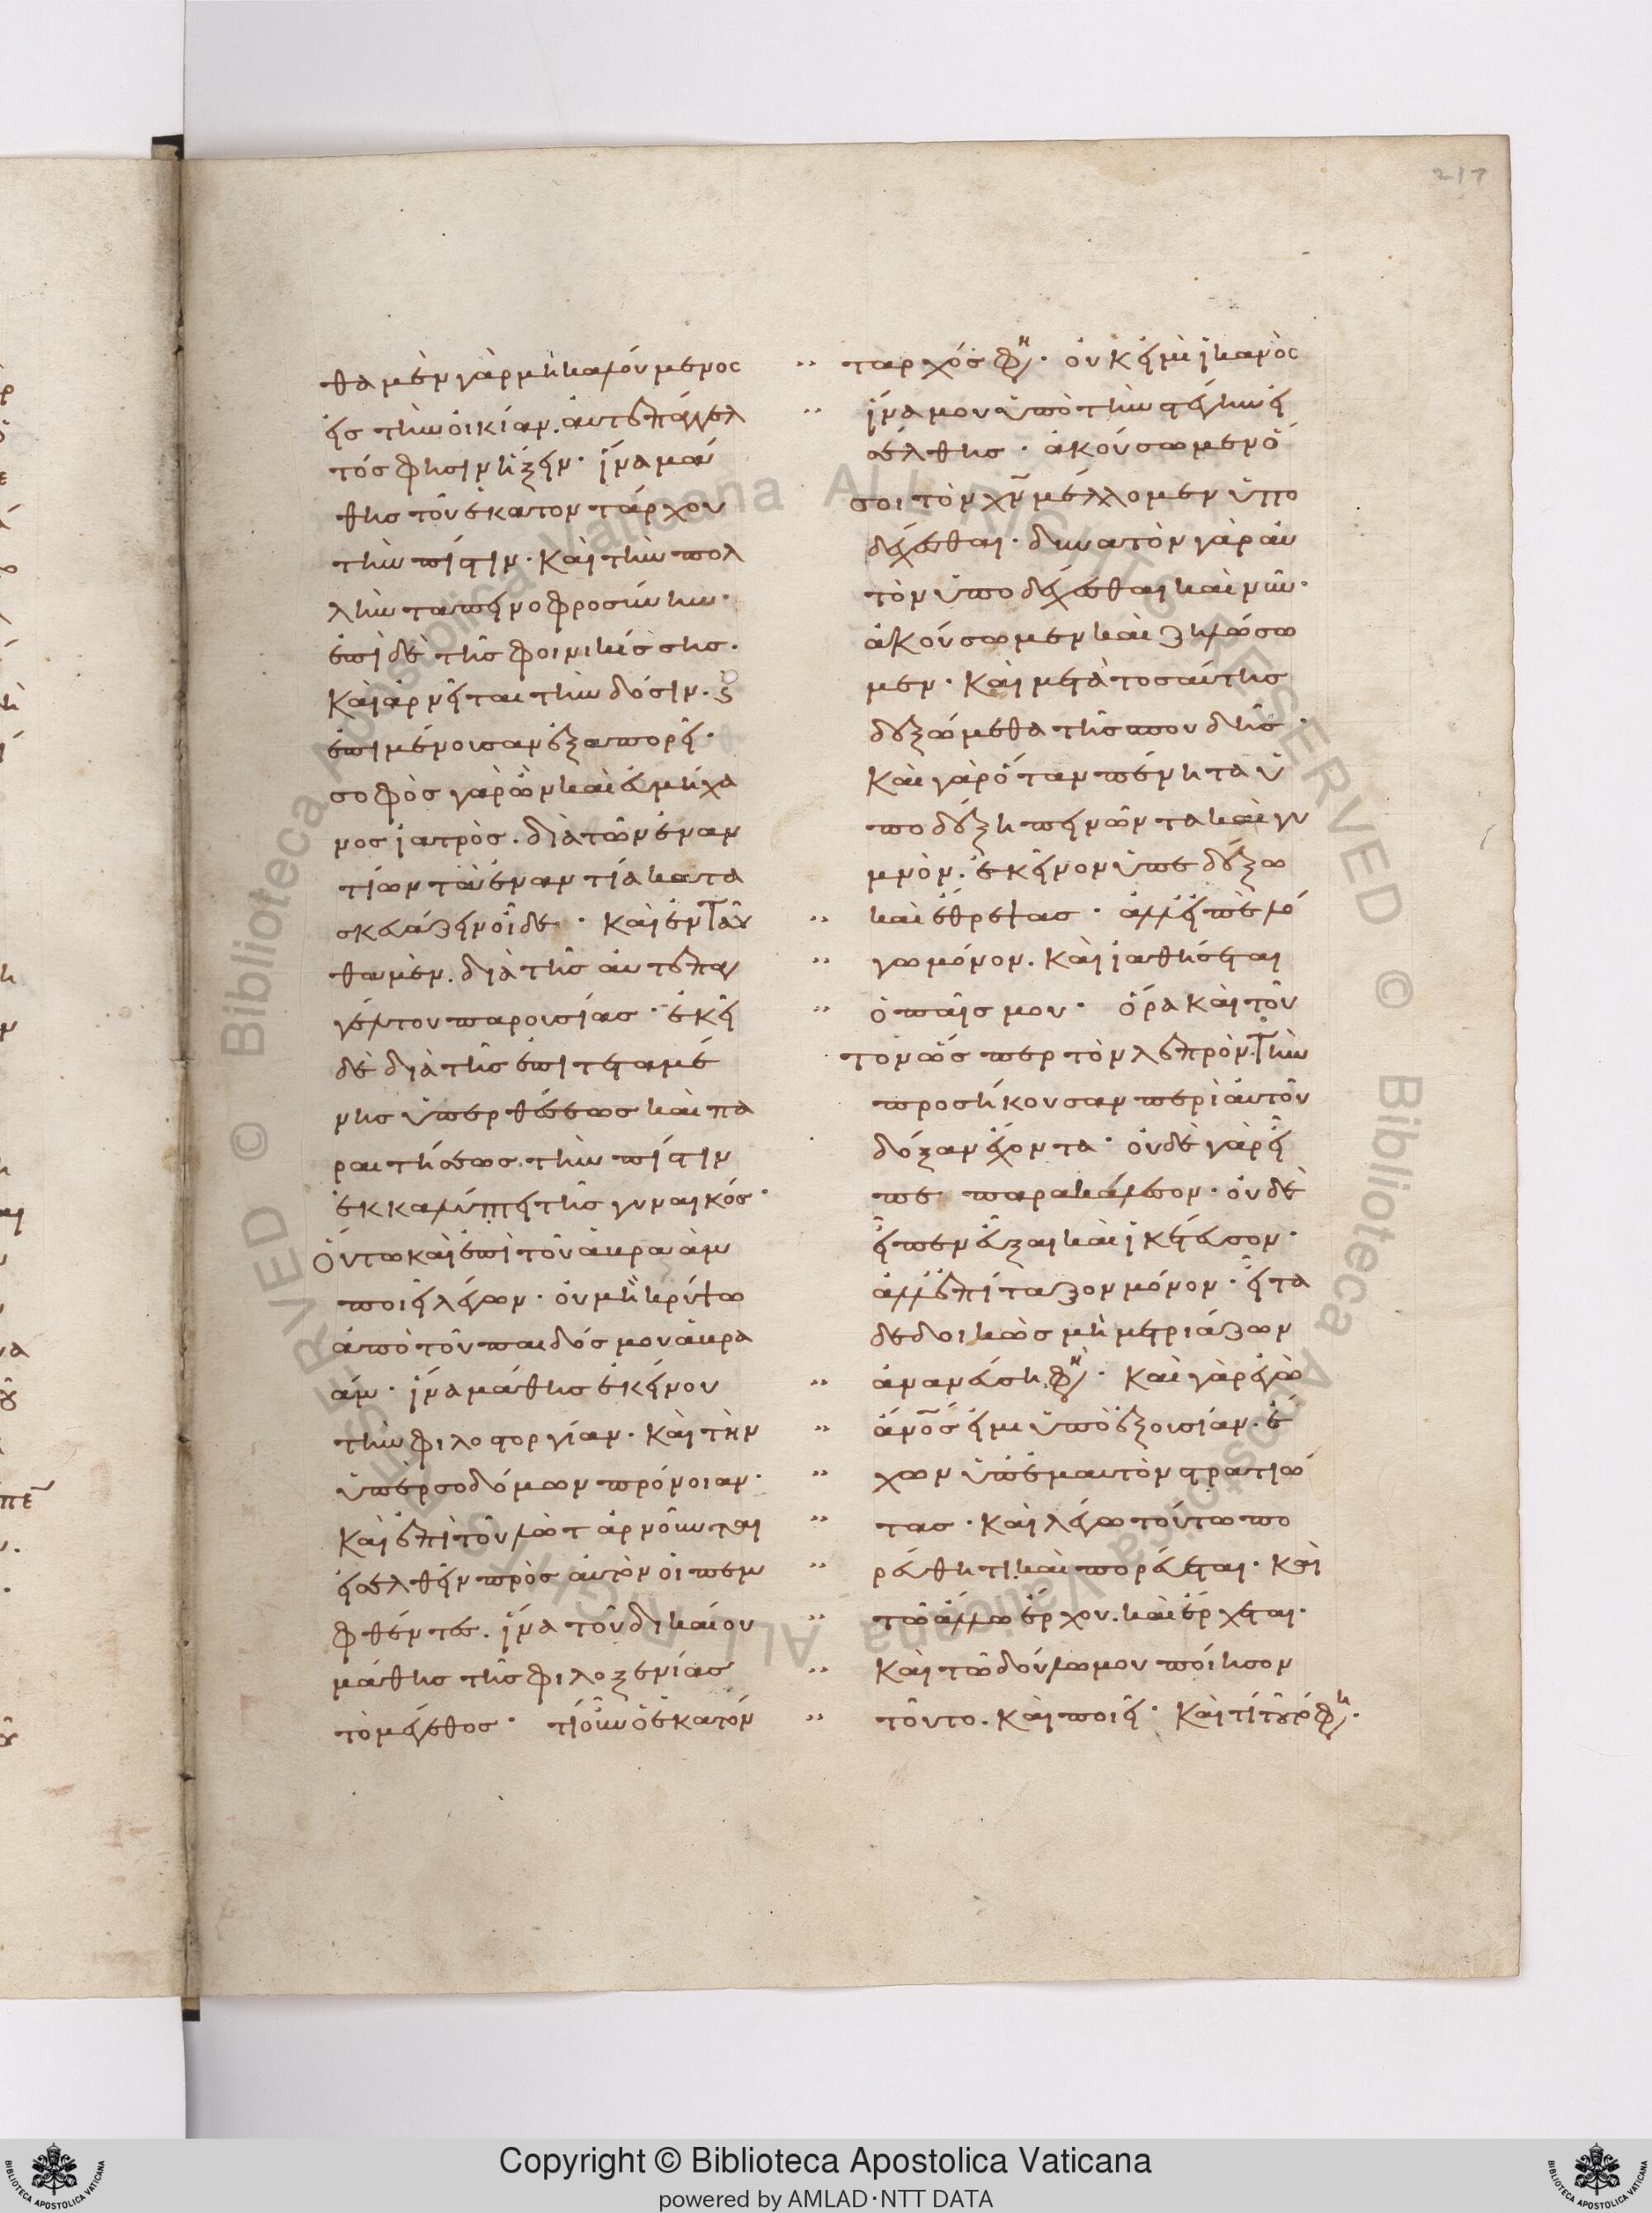 217
θα μὲν γὰρ μὴ καλούμενος
εἰς τὴν οἰκίαν. αὐτεπάγγελ
τός φησιν ἥξειν· ἵνα μά
θης τοῦ ἑκατοντάρχου
τὴν πίστιν· καὶ τὴν πολ
λὴν ταπεινοφροσύνην·
ἐπὶ δὲ τῆς φοινικίσσης·
καὶ ἀρνεῖται τὴν δόσιν· ϛ
ἐπιμένουσαν ἐξαπορεῖ·
σοφὸς γὰρ ὢν καὶ ἀμήχα
νος ἰατρὸς. διὰ τῶν ἐναν
τίων τὰ ἐναντία κατα
σκευάζειν οἶδε· καὶ ἐνταῦ
θα μὲν. διὰ τῆς αὐτεπαγ
γέλτου παρουσίας· ἐκεῖ
δὲ διὰ τῆς ἐπιτεταμέ
νης ὑπερθέσεως καὶ πα
ραιτήσεως. τὴν πίστιν
ἐκκαλύπτει τῆς γυναικός·
Οὕτω καὶ ἐπὶ τοῦ ἀβραὰμ
ποιεῖ λέγων· οὐ μὴ κρύψω
ἀπὸ τοῦ παιδός μου ἀβρα
άμ· ἵνα μάθης ἐκείνου
τὴν φιλοστοργίαν· καὶ τὴν
ὑπὲρ σοδόμων πρόνοιαν·
καὶ ἐπὶ τοῦ λὼτ ἀρνοῦνται
εἰσελθεῖν πρὸς αὐτὸν οἱ πεμ
φθέντες. ἵνα τοῦ δικαίου
μάθης τῆς φιλοξενίας
τὸ μέγεθος· τί οὖν ὁ ἑκατόν
ταρχός φη· οὐκ εἰμὶ ἱκανὸς
ἵνα μου ὑπὸ τὴν στέγην εἰ
σέλθης· ἀκούσωμεν ὅ
σοι τὸν χν μέλλομεν ὑπο
δέχεσθαι· δυνατὸν γὰρ αὐ
τὸν ὑποδέχεσθαι καὶ νῦν·
ἀκούσωμεν καὶ ζηλώσω
μεν· καὶ μετὰ τοσαύτης
δεξώμεθα τῆς σπουδῆς·
καὶ γὰρ ὅταν πένητα ὑ
ποδέξη πεινῶντα καὶ γυ
μνὸν. ἐκεῖνον ὑπεδέξω
καὶ ἔθρεψας· ἀλλ' εἰπὲ λό
γω μόνον. καὶ ἰαθήσεται
ὁ παῖς μου· ὅρα καὶ τοῦ
τον ὥσπερ τὸν λεπρὸν. τὴν
προσήκουσαν περὶ αὐτοῦ
δόξαν ἔχοντα· οὐδὲ γὰρ εἶ
πε παρακάλεσον· οὐδὲ
εἶπεν εὖξαι καὶ ἱκέτευσον·
ἀλλ' ἐπίταξον μόνον· εἶτα
δεδοικὼς μὴ μετριάζων
ἀνανεύση. φη· καὶ γὰρ ἐγὼ
ἄνος εἰμι ὑπὸ ἐξουσίαν. ἔ
χων ὑπ' ἐμαυτὸν στρατιώ
τας· καὶ λέγω τούτω πο
ρεύθητι καὶ πορεύεται· καὶ
τῶ ἄλλω ἔρχου. καὶ ἔρχεται·
καὶ τῶ δούλω μου ποίησον
τοῦτο. καὶ ποιεῖ· καὶ τί τοῦτό φη·
Copyright © Biblioteca Apostolica Vaticana
powered by AMLAD·NTT DATA